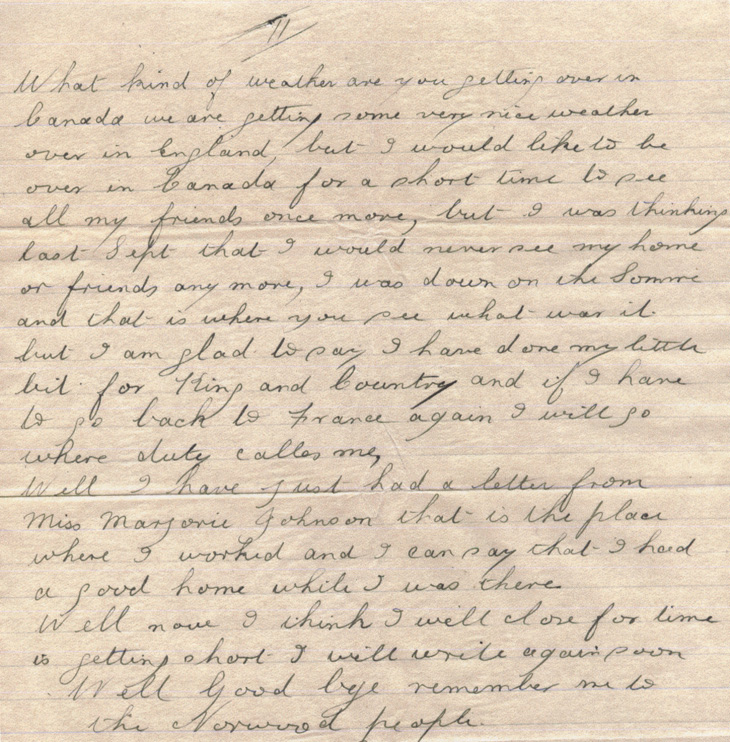 11
What kind of weather are you getting over in
Canada we are getting some very nice weather
over in England, but I would like to be
over in Canada for a short time to see
all my friends once more, but I was thinking
last Sept that I would never see my home
or friends any more, I was down on the Somme
and that is where you see what war it
but I am glad to say I have done my little
bit for King and Country and if I have
to go back to France again I will go
where duty calles me,
Well I have just had a letter from
Miss Marjorie Johnson that is the place
where I worked and I can say that I had
a good home while I was there
Well now I think I well close for time
is getting short I will write again soon
Well Good bye remember me to
the Norwood people.